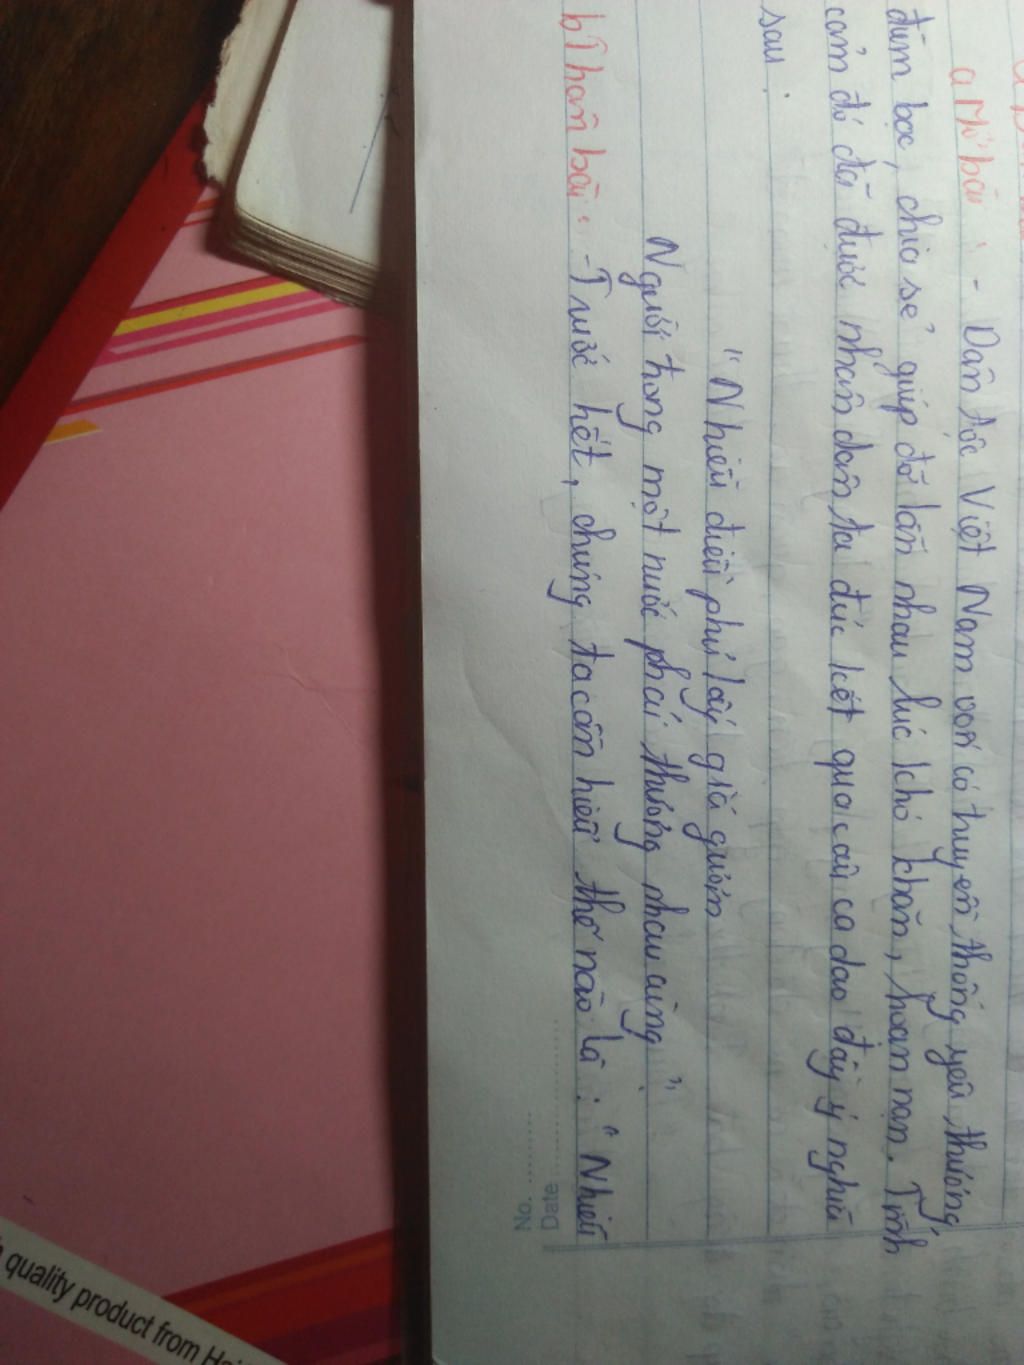 a Mở bài : - Dân tộc Việt Nam vốn có truyền thống yêu thương,
đùm bọc, chia sẻ giúp đỡ lẫn nhau lúc khó khăn, hoạn nạn. Tình
cảm đó đã được nhân dân ta đúc kết qua câu ca dao đầy ý nghĩa
sau :
"Nhiễu điều phủ lấy giá gương
Người trong một nước phải thương nhau cùng"
b Thân bài : - Trước hết, chúng ta cần hiểu thế nào là : "Nhiễu
No. ............
Date ............
quality product from